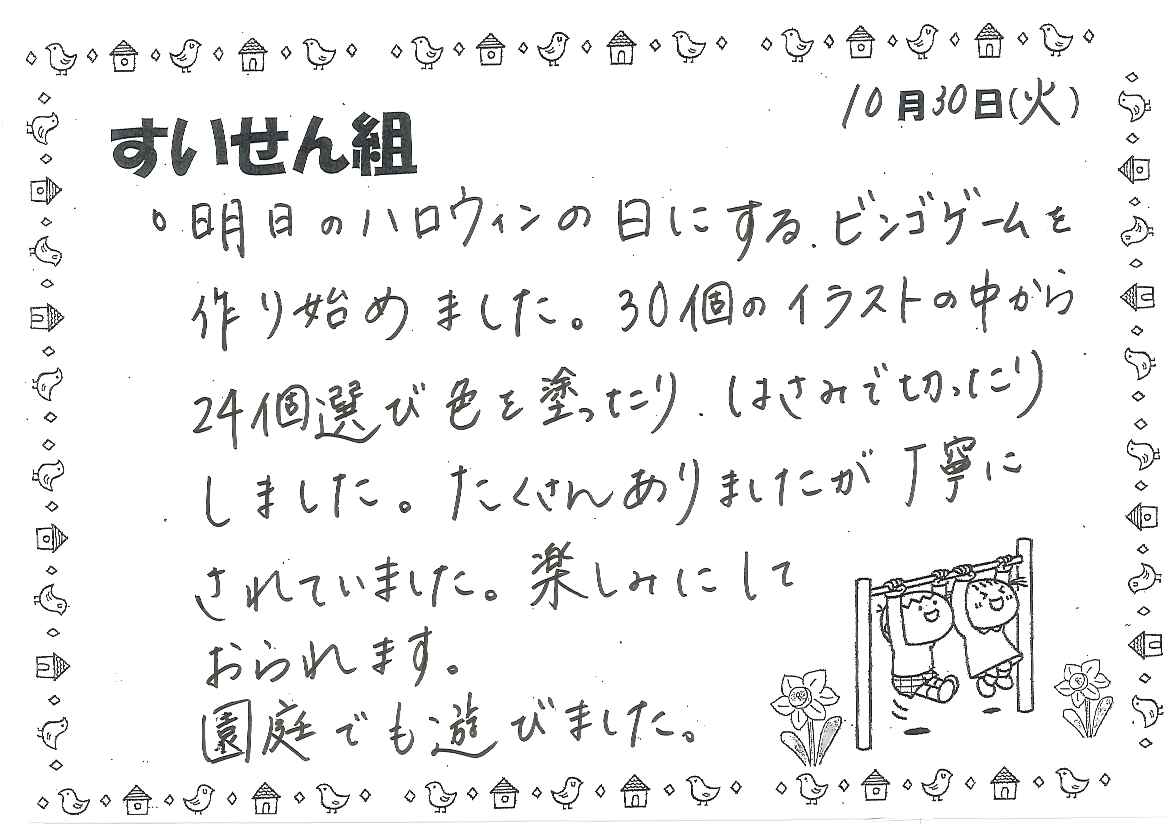 10月30日(火)
すいせん組
○明日のハロウィンの日にする、ビンゴゲームを
作り始めました。30個のイラストの中から
24個選び色を塗ったり、はさみで切ったり
しました。たくさんありましたが丁寧に
されていました。楽しみにして
おられます。
園庭でも遊びました。